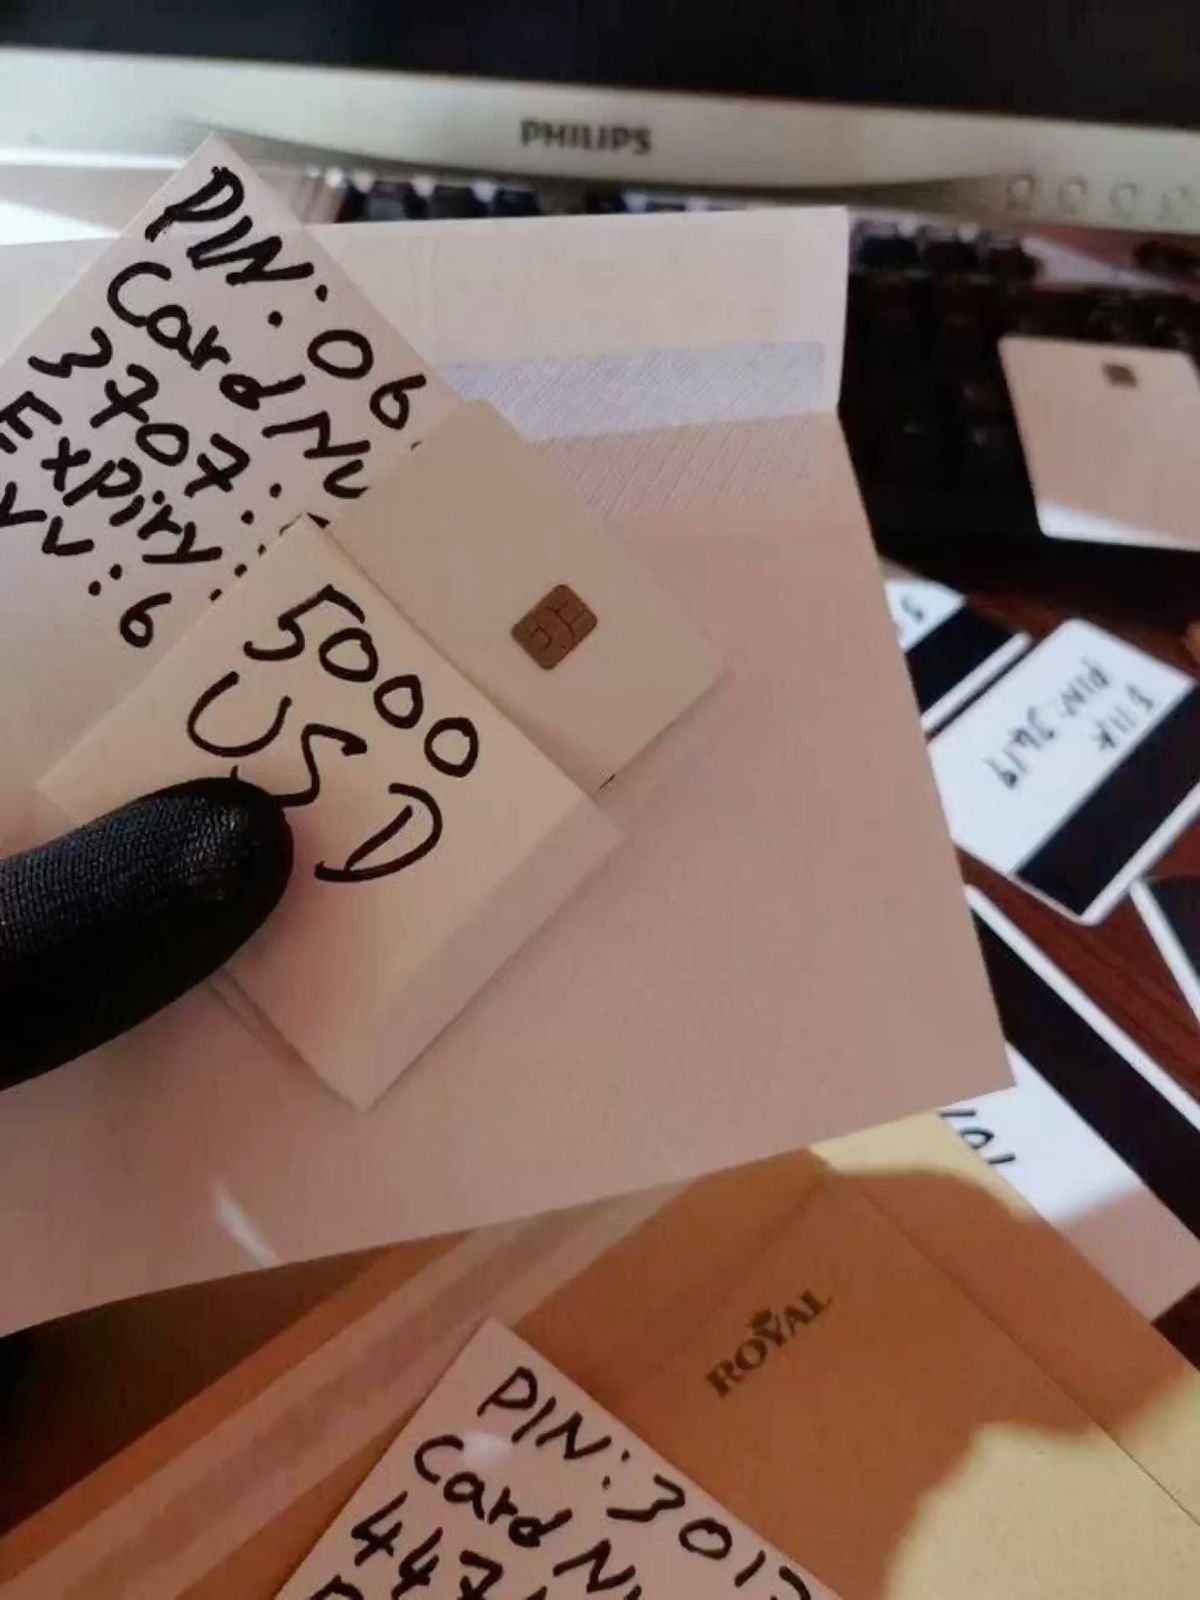 PHILIPS
PIN: 06
Card Nu
3707:
Expiry:
VV: 6
5000
USD
PIN: 3619
101
ROYAL
PIN: 301
Card Nu
447